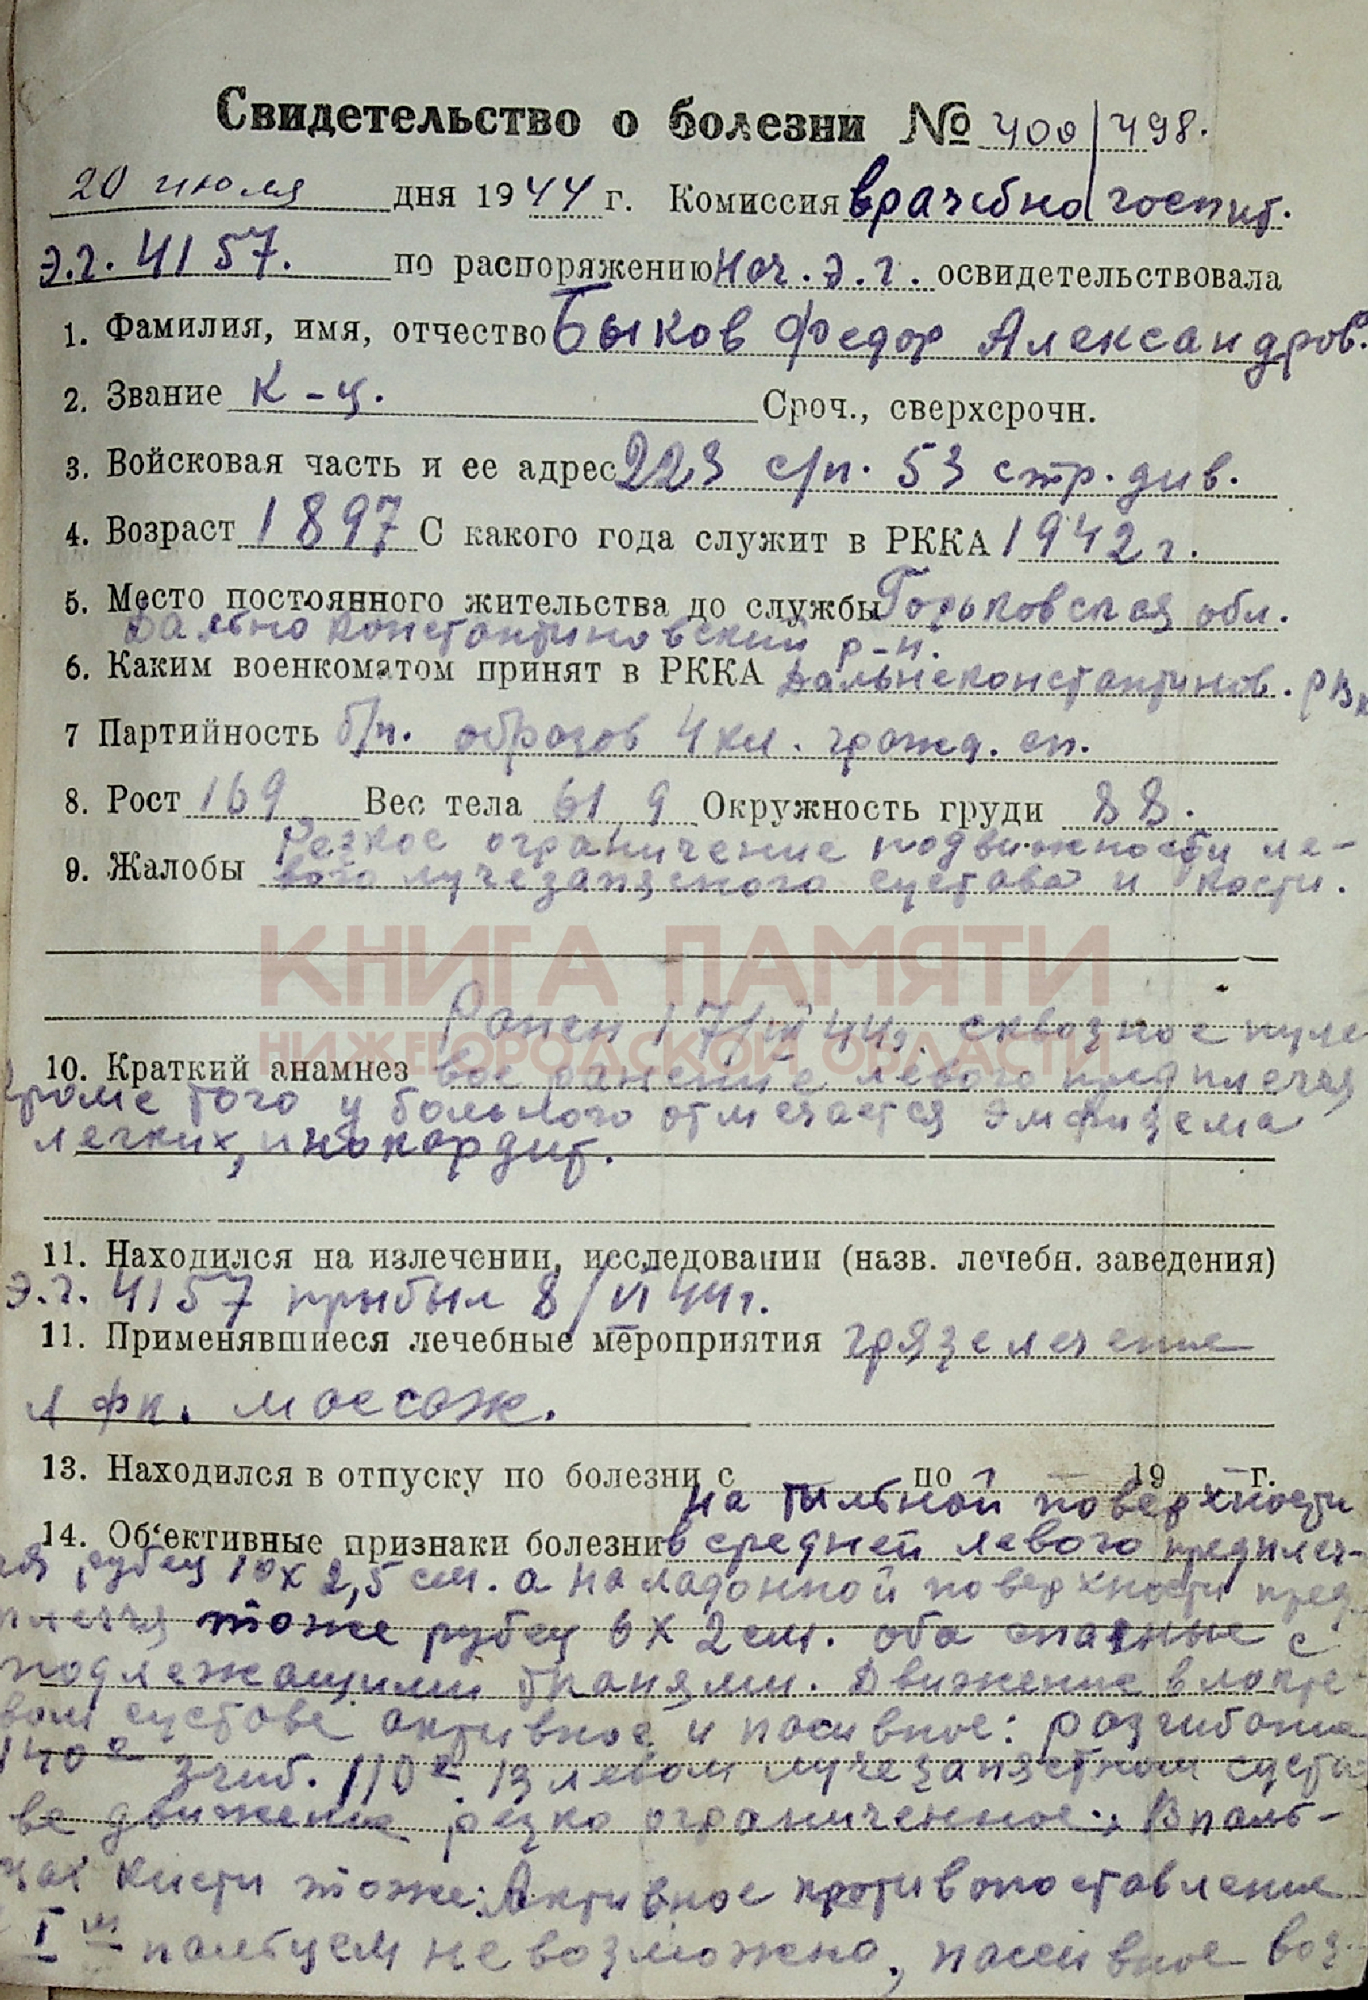 Свидетельство о болезни № 400/498.
20 июля дня 1944 г. Комиссия врачебно госпит.
э.г. 4157. по распоряжению нач. э.г. освидетельствовала
1. Фамилия, имя, отчество Быков Федор Александров.
2. Звание К-ц. Сроч., сверхсрочн.
3. Войсковая часть и ее адрес 223 с/п. 53 стр. див.
4. Возраст 1897 С какого года служит в РККА 1942 г.
5. Место постоянного жительства до службы Горьковская обл.
Дально Константиновский р-н.
6. Каким военкоматом принят в РККА Дальнеконстантинов. РВК
7 Партийность б/п. образов 4 кл. гражд. сп.
8. Рост 169 Вес тела 61 9 Окружность груди 88.
Резкое ограничение подвижности ле-
9. Жалобы вого лучезапясного сустава и кости.
КНИГА ПАМЯТИ
Ранен 17/ 44г. сквозное пуле
НИЖЕГОРОДСКОЙ ОБЛАСТИ
10. Краткий анамнез вое ранение левого предплечья
Кроме того у больного отмечается эмфизема
легких, инокардит.
11. Находился на излечении, исследовании (назв. лечебн. заведения)
э.г. 4157 прибыл 8/VI 44г.
11. Применявшиеся лечебные мероприятия грязелечение
лфк. массаж.
13. Находился в отпуску по болезни с по 19 г.
на тыльной поверхности
14. Об‘ективные признаки болезни в средней левого предплеч-
ья рубец 10х2,5 см. а на ладонной поверхности пред
плечья тоже рубец 6х2 см. оба спаяные с
подлежащими тканями. Движение в локте-
вом суставе активное и пасивное: разгибание
140° згиб. 110° В левом лучезапястном суста
ве движение резко ограниченное. В паль-
цах кисти тоже. Активное противопоставление
I м пальцем не возможно, пасивное воз